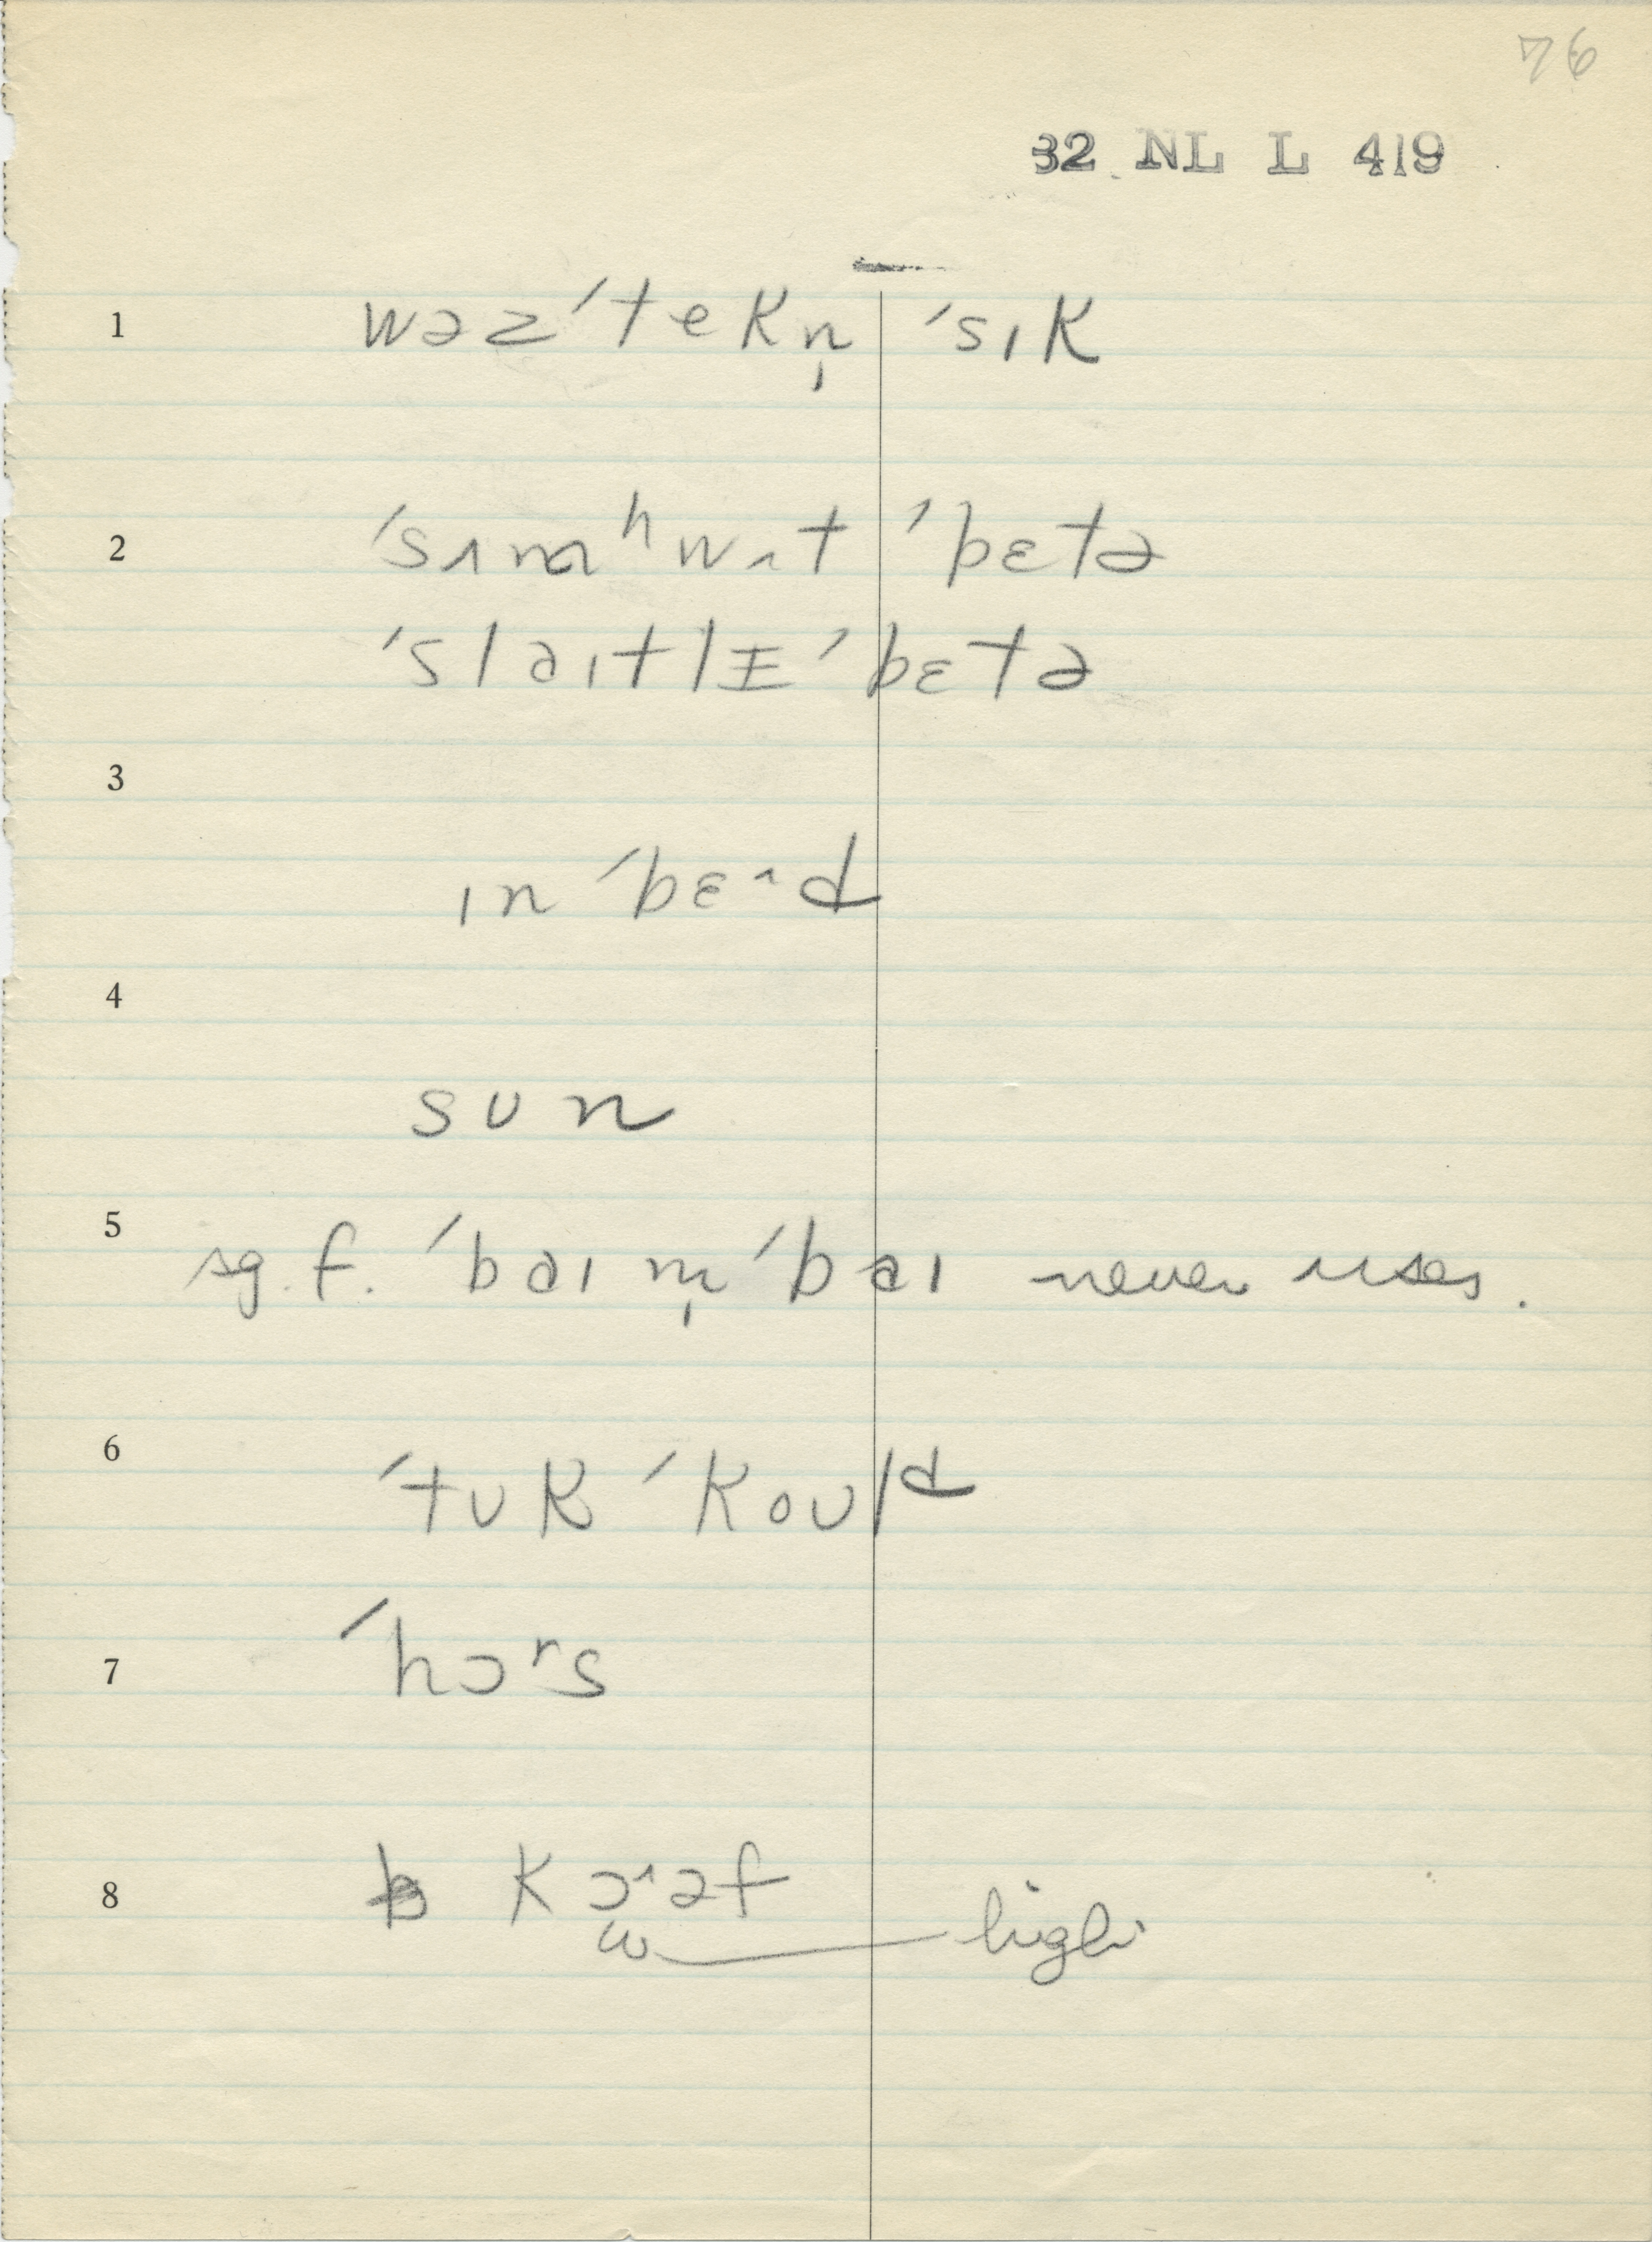 76
32 NL L 419
1 wəz ˈtekn̩ ˈsɪk
2 ˈsʌmʰwʌt ˈbɛtə
ˈslaɪtlɪ ˈbɛtə
3
ɪn ˈbɛˑd
4
sun
5
sg. f. ˈbaɪ m̩ ˈbaɪ never uses.
6
ˈtuk ˈkould
7 ˈhɔʳs
8 kɔˑəf
ω high